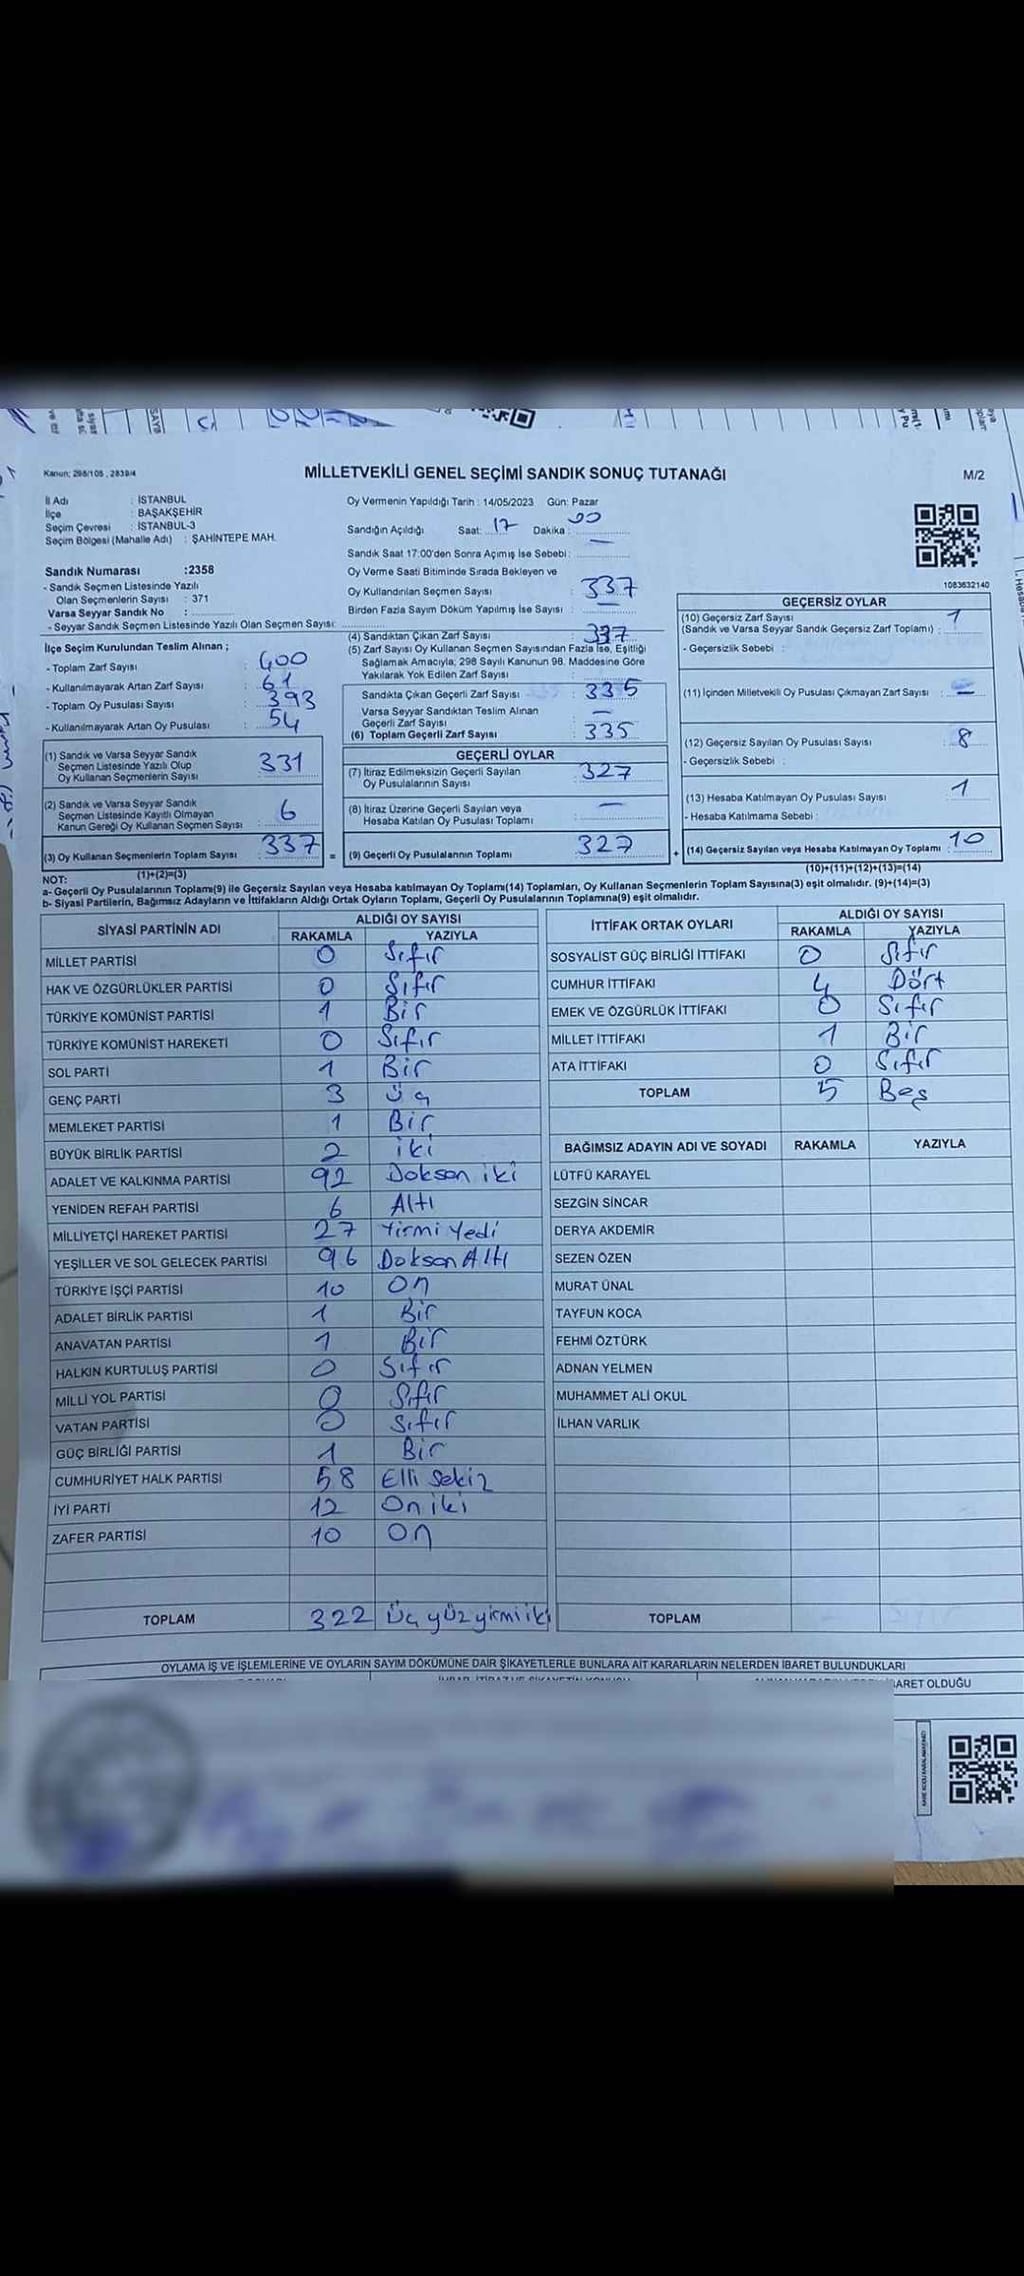 Kanun; 298/105 , 2839/4
MİLLETVEKİLİ GENEL SEÇİMİ SANDIK SONUÇ TUTANAĞI
M/2
İl Adı : İSTANBUL
İlçe : BAŞAKŞEHİR
Seçim Çevresi : İSTANBUL-3
Seçim Bölgesi (Mahalle Adı) : ŞAHİNTEPE MAH.
Sandık Numarası :2358
- Sandık Seçmen Listesinde Yazılı
Olan Seçmenlerin Sayısı : 371
Varsa Seyyar Sandık No :
- Seyyar Sandık Seçmen Listesinde Yazılı Olan Seçmen Sayısı:
Oy Vermenin Yapıldığı Tarih : 14/05/2023 Gün: Pazar
Sandığın Açıldığı Saat: 17 Dakika : 00
Sandık Saat 17:00'den Sonra Açımış İse Sebebi : —
Oy Verme Saati Bitiminde Sırada Bekleyen ve
Oy Kullandırılan Seçmen Sayısı : 337
Birden Fazla Sayım Döküm Yapılmış İse Sayısı : —
1083632140
İlçe Seçim Kurulundan Teslim Alınan ;
- Toplam Zarf Sayısı : 400
- Kullanılmayarak Artan Zarf Sayısı : 61
- Toplam Oy Pusulası Sayısı : 393
- Kullanılmayarak Artan Oy Pusulası : 54
(1) Sandık ve Varsa Seyyar Sandık
Seçmen Listesinde Yazılı Olup
Oy Kullanan Seçmenlerin Sayısı : 331
(2) Sandık ve Varsa Seyyar Sandık
Seçmen Listesinde Kayıtlı Olmayan
Kanun Gereği Oy Kullanan Seçmen Sayısı : 6
(3) Oy Kullanan Seçmenlerin Toplam Sayısı : 337
(1)+(2)=(3)
(4) Sandıktan Çıkan Zarf Sayısı : 337
(5) Zarf Sayısı Oy Kullanan Seçmen Sayısından Fazla İse, Eşitliği
Sağlamak Amacıyla; 298 Sayılı Kanunun 98. Maddesine Göre
Yakılarak Yok Edilen Zarf Sayısı :
Sandıkta Çıkan Geçerli Zarf Sayısı : 335
Varsa Seyyar Sandıktan Teslim Alınan
Geçerli Zarf Sayısı : —
(6) Toplam Geçerli Zarf Sayısı : 335
GEÇERLİ OYLAR
(7) İtiraz Edilmeksizin Geçerli Sayılan
Oy Pusulalarının Sayısı : 327
(8) İtiraz Üzerine Geçerli Sayılan veya
Hesaba Katılan Oy Pusulası Toplamı : —
= (9) Geçerli Oy Pusulalarının Toplamı : 327
GEÇERSİZ OYLAR
(10) Geçersiz Zarf Sayısı
(Sandık ve Varsa Seyyar Sandık Geçersiz Zarf Toplamı) : 1
- Geçersizlik Sebebi :
(11) İçinden Milletvekili Oy Pusulası Çıkmayan Zarf Sayısı : —
(12) Geçersiz Sayılan Oy Pusulası Sayısı : 8
- Geçersizlik Sebebi :
(13) Hesaba Katılmayan Oy Pusulası Sayısı : 1
- Hesaba Katılmama Sebebi :
+ (14) Geçersiz Sayılan veya Hesaba Katılmayan Oy Toplamı : 10
(10)+(11)+(12)+(13)=(14)
NOT:
a- Geçerli Oy Pusulalarının Toplamı(9) ile Geçersiz Sayılan veya Hesaba katılmayan Oy Toplamı(14) Toplamları, Oy Kullanan Seçmenlerin Toplam Sayısına(3) eşit olmalıdır. (9)+(14)=(3)
b- Siyasi Partilerin, Bağımsız Adayların ve İttifakların Aldığı Ortak Oyların Toplamı, Geçerli Oy Pusulalarının Toplamına(9) eşit olmalıdır.
SİYASİ PARTİNİN ADI
ALDIĞI OY SAYISI
RAKAMLA YAZIYLA
MİLLET PARTİSİ 0 Sıfır
HAK VE ÖZGÜRLÜKLER PARTİSİ 0 Sıfır
TÜRKİYE KOMÜNİST PARTİSİ 1 Bir
TÜRKİYE KOMÜNİST HAREKETİ 0 Sıfır
SOL PARTİ 1 Bir
GENÇ PARTİ 3 Üç
MEMLEKET PARTİSİ 1 Bir
BÜYÜK BİRLİK PARTİSİ 2 iki
ADALET VE KALKINMA PARTİSİ 92 Doksan iki
YENİDEN REFAH PARTİSİ 6 Altı
MİLLİYETÇİ HAREKET PARTİSİ 27 Yirmi Yedi
YEŞİLLER VE SOL GELECEK PARTİSİ 96 Doksan Altı
TÜRKİYE İŞÇİ PARTİSİ 10 On
ADALET BİRLİK PARTİSİ 1 Bir
ANAVATAN PARTİSİ 1 Bir
HALKIN KURTULUŞ PARTİSİ 0 Sıfır
MİLLİ YOL PARTİSİ 0 Sıfır
VATAN PARTİSİ 0 Sıfır
GÜÇ BİRLİĞİ PARTİSİ 1 Bir
CUMHURİYET HALK PARTİSİ 58 Elli Sekiz
İYİ PARTİ 12 On iki
ZAFER PARTİSİ 10 On
TOPLAM 322 Üç yüz yirmi iki
İTTİFAK ORTAK OYLARI
ALDIĞI OY SAYISI
RAKAMLA YAZIYLA
SOSYALİST GÜÇ BİRLİĞİ İTTİFAKI 0 Sıfır
CUMHUR İTTİFAKI 4 Dört
EMEK VE ÖZGÜRLÜK İTTİFAKI 0 Sıfır
MİLLET İTTİFAKI 1 Bir
ATA İTTİFAKI 0 Sıfır
TOPLAM 5 Beş
BAĞIMSIZ ADAYIN ADI VE SOYADI RAKAMLA YAZIYLA
LÜTFÜ KARAYEL
SEZGİN SİNCAR
DERYA AKDEMİR
SEZEN ÖZEN
MURAT ÜNAL
TAYFUN KOCA
FEHMİ ÖZTÜRK
ADNAN YELMEN
MUHAMMET ALİ OKUL
İLHAN VARLIK
TOPLAM
OYLAMA İŞ VE İŞLEMLERİNE VE OYLARIN SAYIM DÖKÜMÜNE DAİR ŞİKAYETLERLE BUNLARA AİT KARARLARIN NELERDEN İBARET BULUNDUKLARI
BARET OLDUĞU